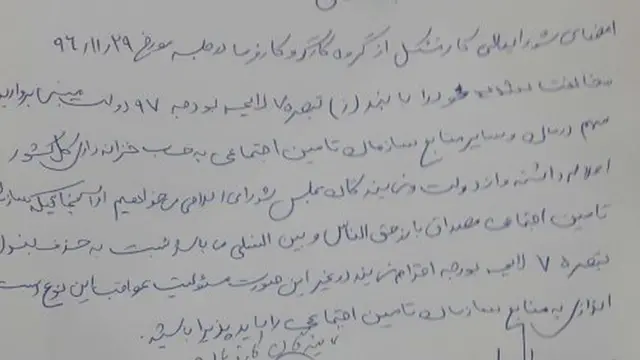 اعضای شورایعالی کار متشکل از گروه کارگر و کارفرما در جلسه مورخ ۹۶/۱۱/۲۹
مخالفت خود را با بند (ز) تبصره ۷ لایحه بودجه ۹۷ دولت مبنی بر واریز
سهم درمان و سایر منابع سازمان تامین اجتماعی به حساب خزانه داری کل کشور
اعلام داشته و از دولت و نمایندگان مجلس شورای اسلامی می خواهیم از آنجائیکه سازمان
تامین اجتماعی مصداق بارز حق الناس و بین النسلی می باشد نسبت به حذف
تبصره ۷ لایحه بودجه اقدام نمایند در غیر این صورت مسئولیت عواقب این نوع دست
اندازی به منابع سازمان تامین اجتماعی را باید پذیرا باشند.
نمایندگان